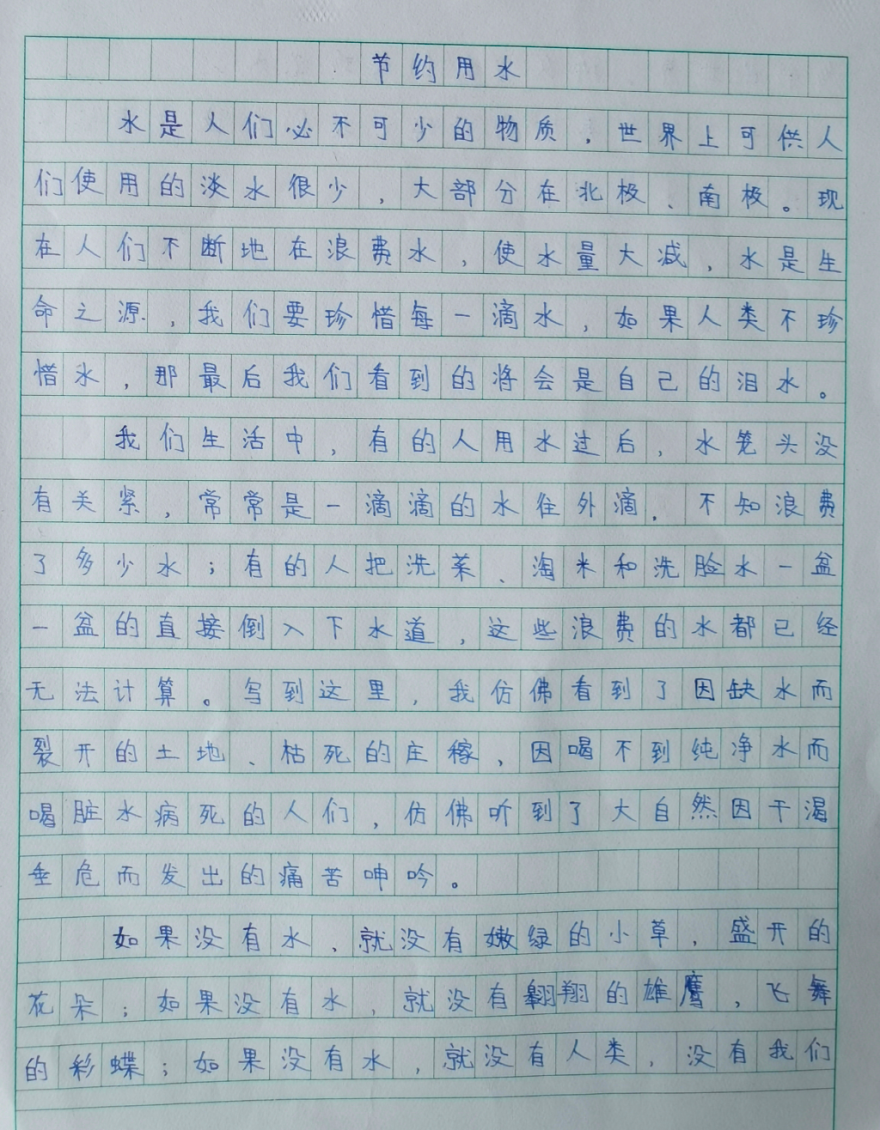 节约用水
水是人们必不可少的物质，世界上可供人
们使用的淡水很少，大部分在北极、南极。现
在人们不断地在浪费水，使水量大减，水是生
命之源，我们要珍惜每一滴水，如果人类不珍
惜水，那最后我们看到的将会是自己的泪水。
我们生活中，有的人用水过后，水笼头没
有关紧，常常是一滴滴的水住外滴，不知浪费
了多少水；有的人把洗菜、淘米和洗脸水一盆
一盆的直接倒入下水道，这些浪费的水都已经
无法计算。写到这里，我仿佛看到了因缺水而
裂开的土地、枯死的庄稼，因喝不到纯净水而
喝脏水病死的人们，仿佛听到了大自然因干渴
垂危而发出的痛苦呻吟。
如果没有水，就没有嫩绿的小草，盛开的
花朵；如果没有水，就没有翱翔的雄鹰，飞舞
的彩蝶；如果没有水，就没有人类，没有我们